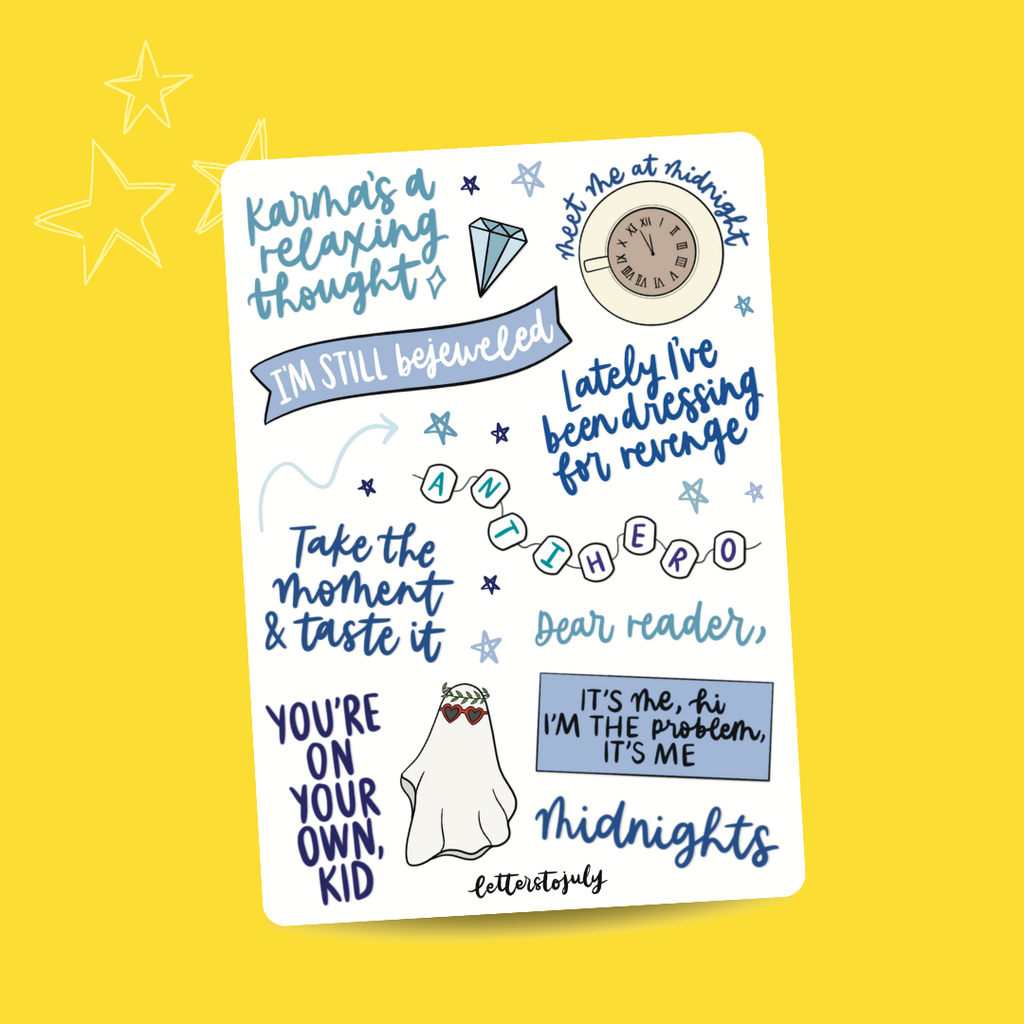 Karma's a
relaxing
thought
meet me at midnight
XII
I
II
III
IIII
V
VI
VII
VIII
IX
X
XI
I'M STILL bejeweled
Lately I've
been dressing
for revenge
ANTIHERO
Take the
moment
& taste it
Dear reader,
YOU'RE
ON
YOUR
OWN,
KID
IT'S me, hi
I'M THE problem,
IT'S ME
Midnights
letterstojuly